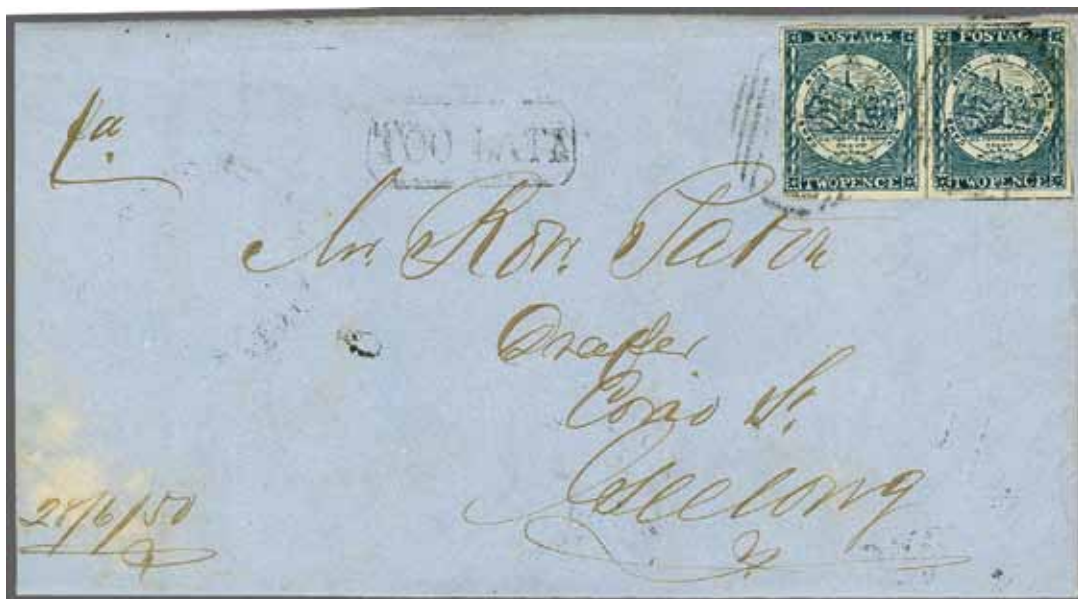 POSTAGE POSTAGE
TWO PENCE TWO PENCE
TOO LATE
Mr. Robt. Paton
Draper
Corio St.
Geelong
28/6/50